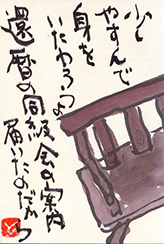 少し
やすんで
身を
いたわろうよ
還暦の同級会の案内
届いたのだから